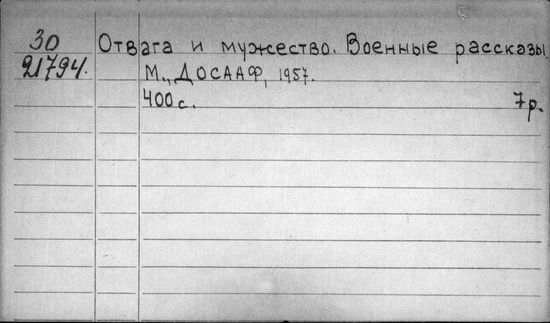 30 Отвага и мужество. Военные рассказы.
21794. М., ДОСААФ, 1957.
400 с. 7 р.